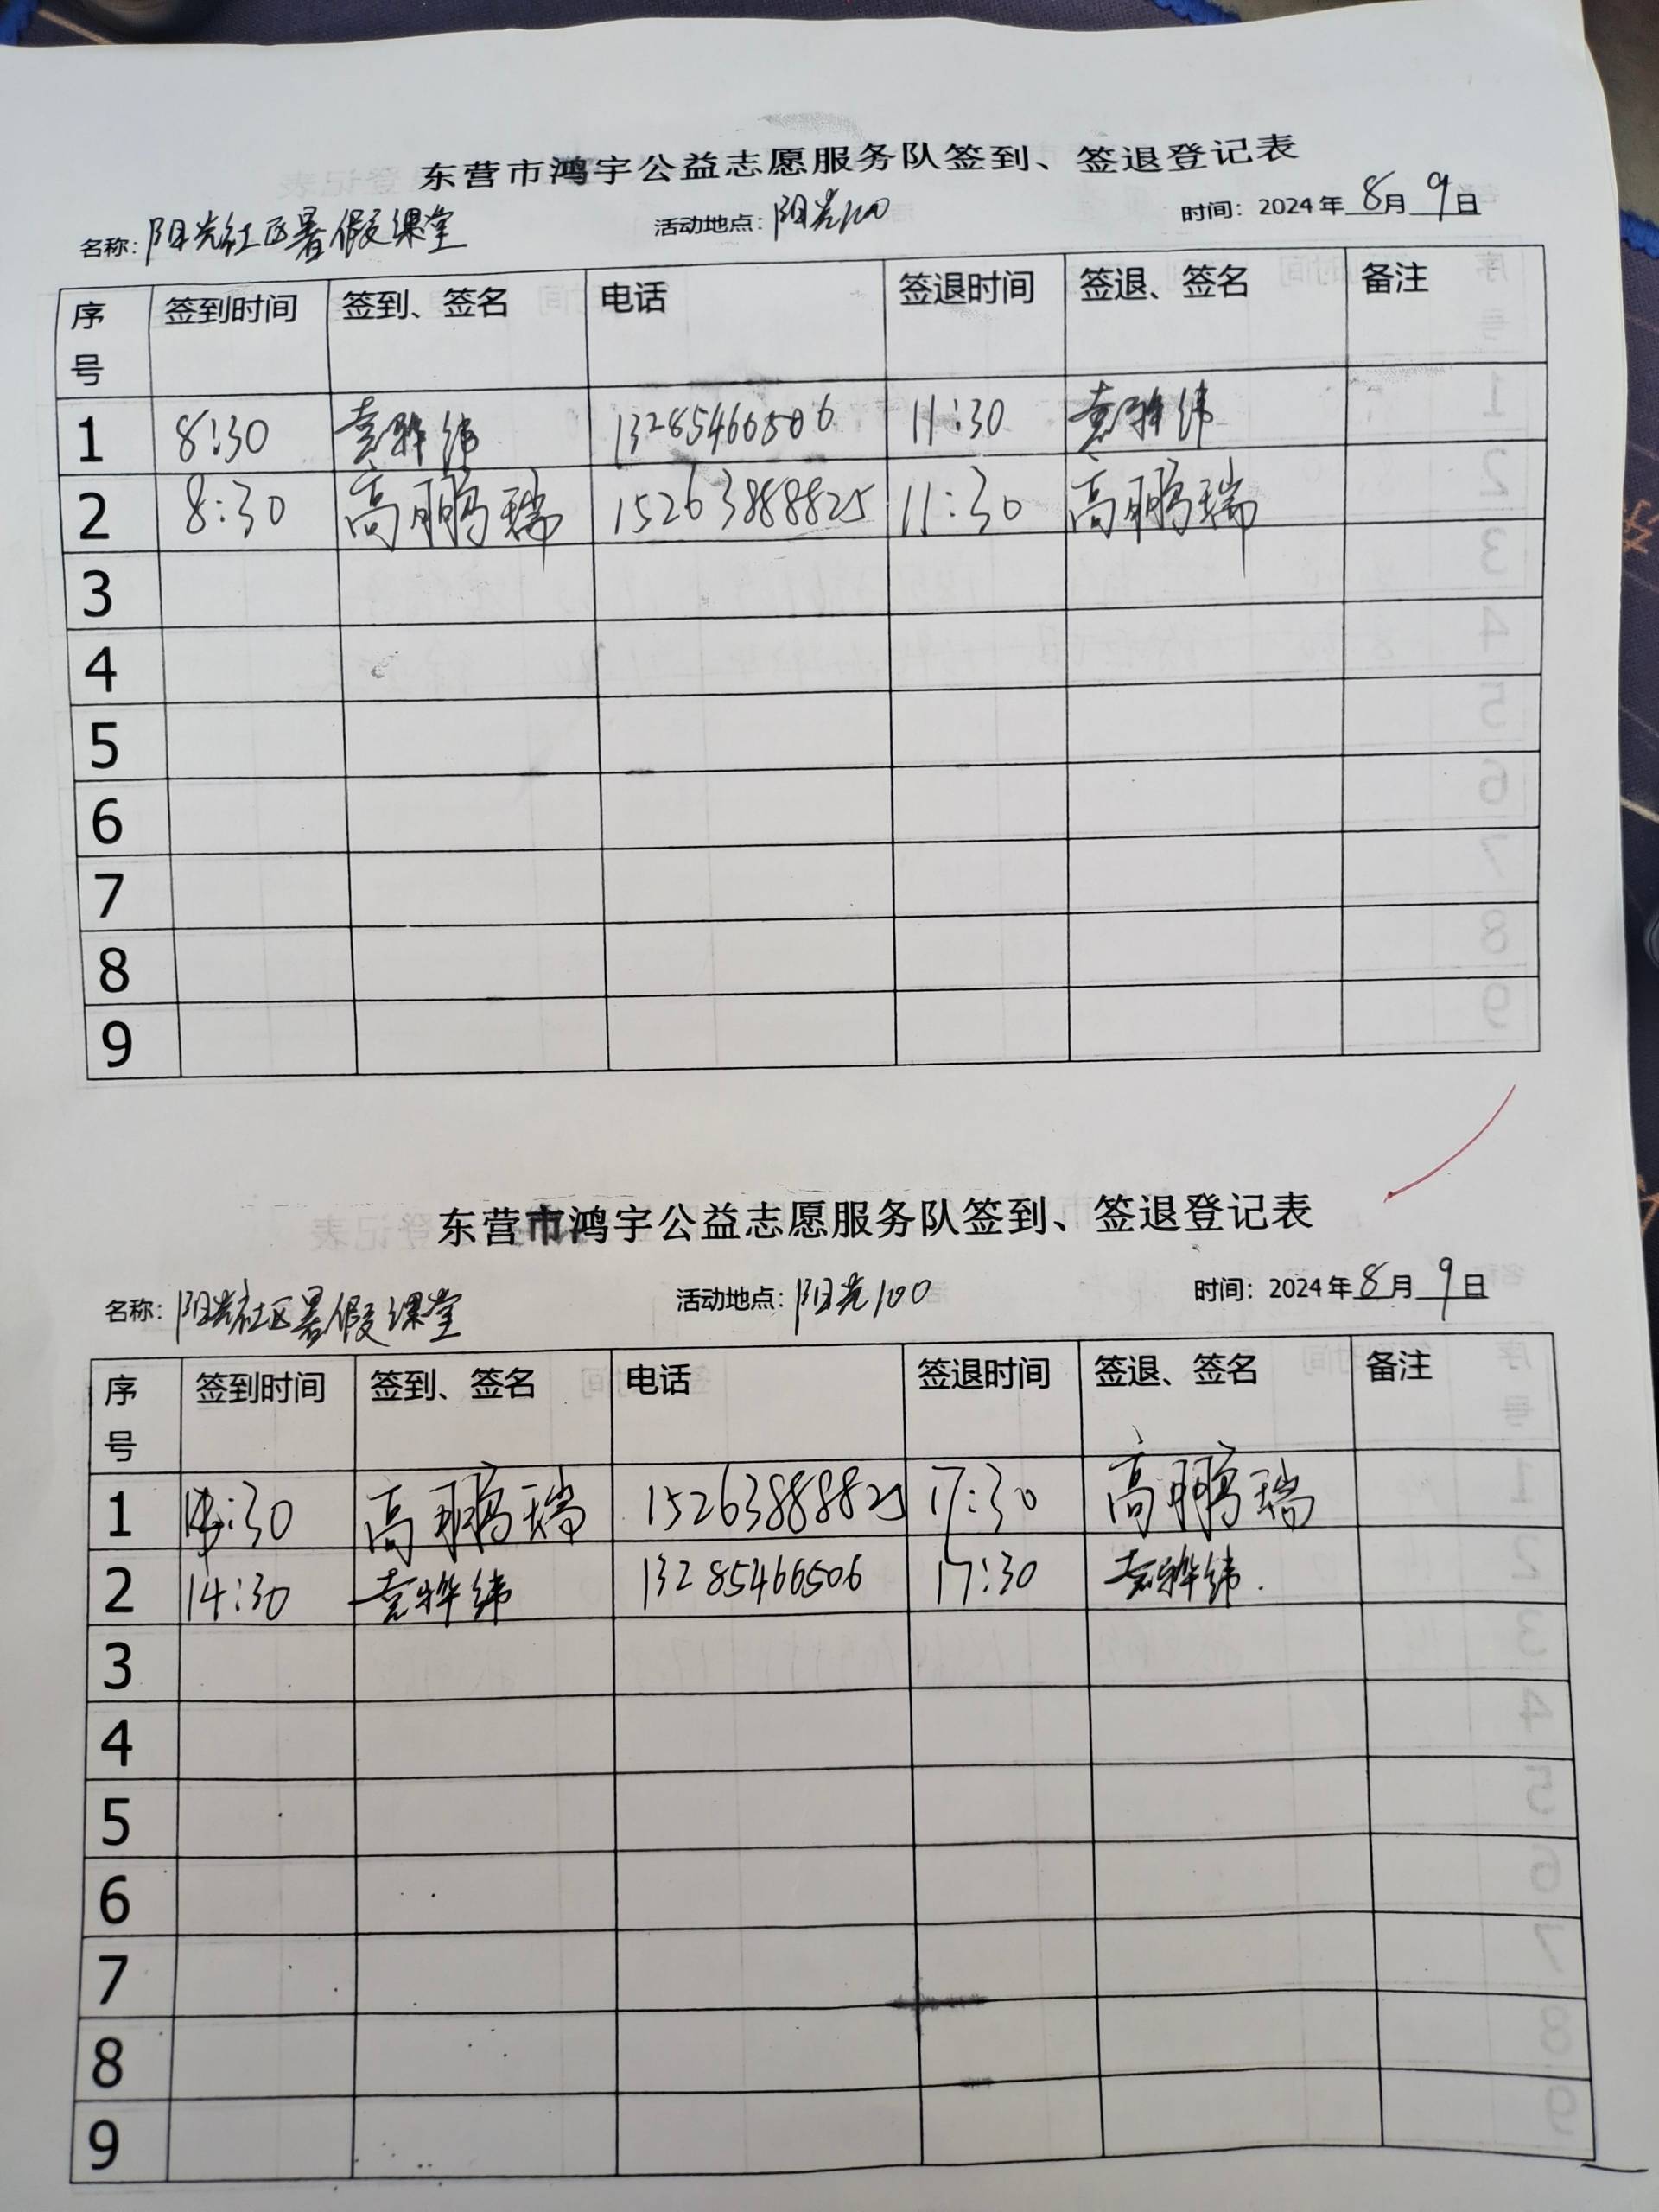 东营市鸿宇公益志愿服务队签到、签退登记表
名称：阳光社区暑假课堂 活动地点：阳光100 时间：2024年8月9日
序号 签到时间 签到、签名 电话 签退时间 签退、签名 备注
1 8:30 袁骅纬 13285466506 11:30 袁骅纬
2 8:30 高鹏瑞 15263888825 11:30 高鹏瑞
3
4
5
6
7
8
9
东营市鸿宇公益志愿服务队签到、签退登记表
名称：阳光社区暑假课堂 活动地点：阳光100 时间：2024年8月9日
序号 签到时间 签到、签名 电话 签退时间 签退、签名 备注
1 14:30 高鹏瑞 15263888825 17:30 高鹏瑞
2 14:30 袁骅纬 13285466506 17:30 袁骅纬.
3
4
5
6
7
8
9